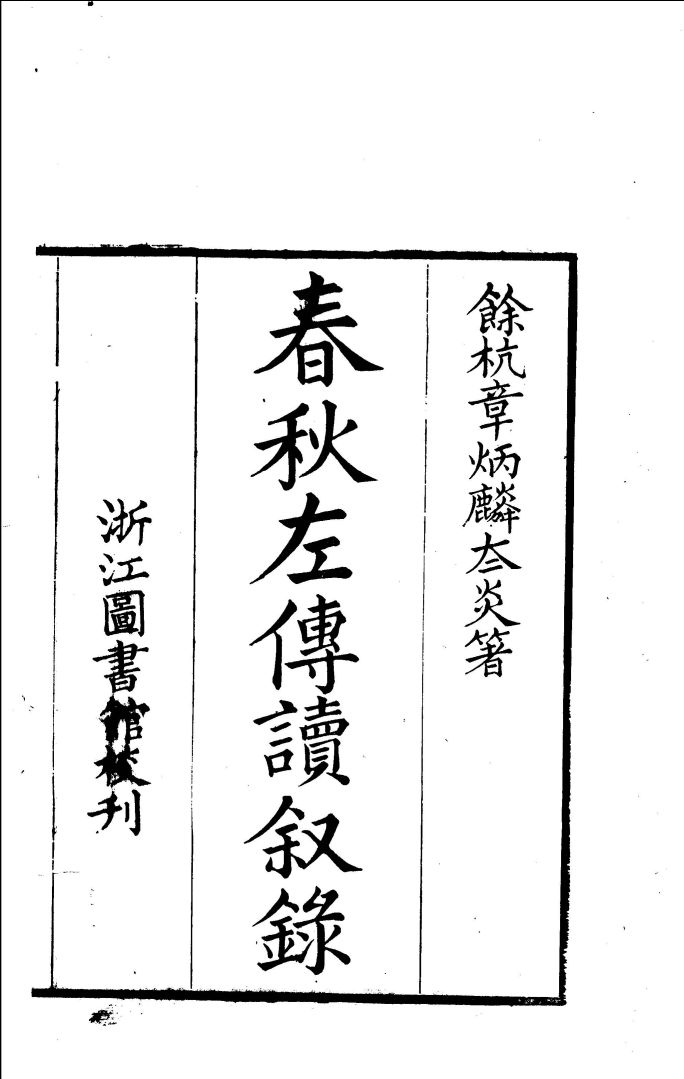 餘杭章炳麟夳炎箸
春秋左傳讀叙錄
浙江圖書館校刊